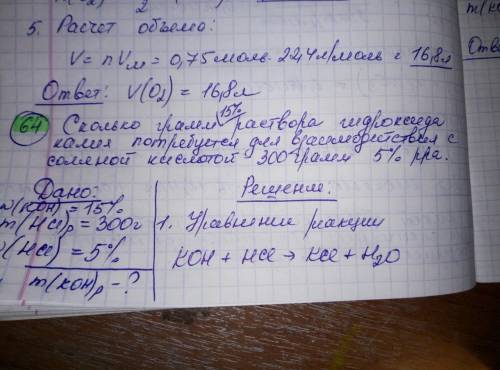 5. Расчет объема
V = nVм = 0,75 моль · 22,4 л/моль = 16,8л
Ответ: V(O₂) = 16,8л
15%
64 Сколько грамм раствора гидроксида
калия потребуется для взаимодействия с
соляной кислотой 300 грамм 5% р-ра.
Дано:
w(KOH) = 15%
m(HCl)р = 300г
(HCl) = 5%
m(KOH)р - ?
Решение:
1. Уравнение реакции
KOH + HCl → KCl + H₂O